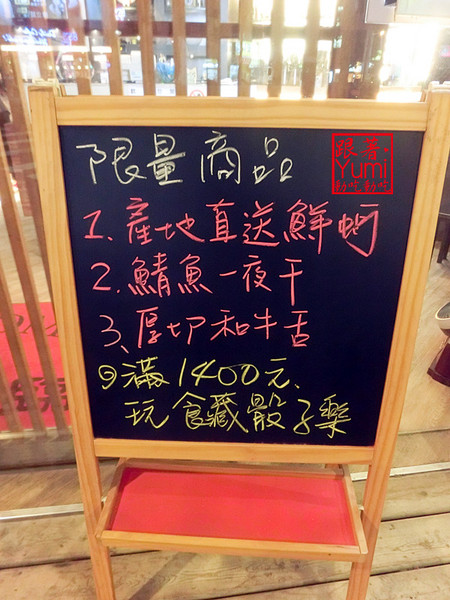 限量商品
跟著
Yumi
1. 產地直送鮮蚵
2. 鯖魚一夜干
3、厚切和牛舌
滿1400元、
玩食藏骰子樂